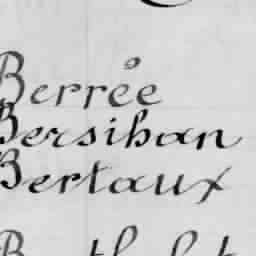 Berrée
Bersihan
Bertaux